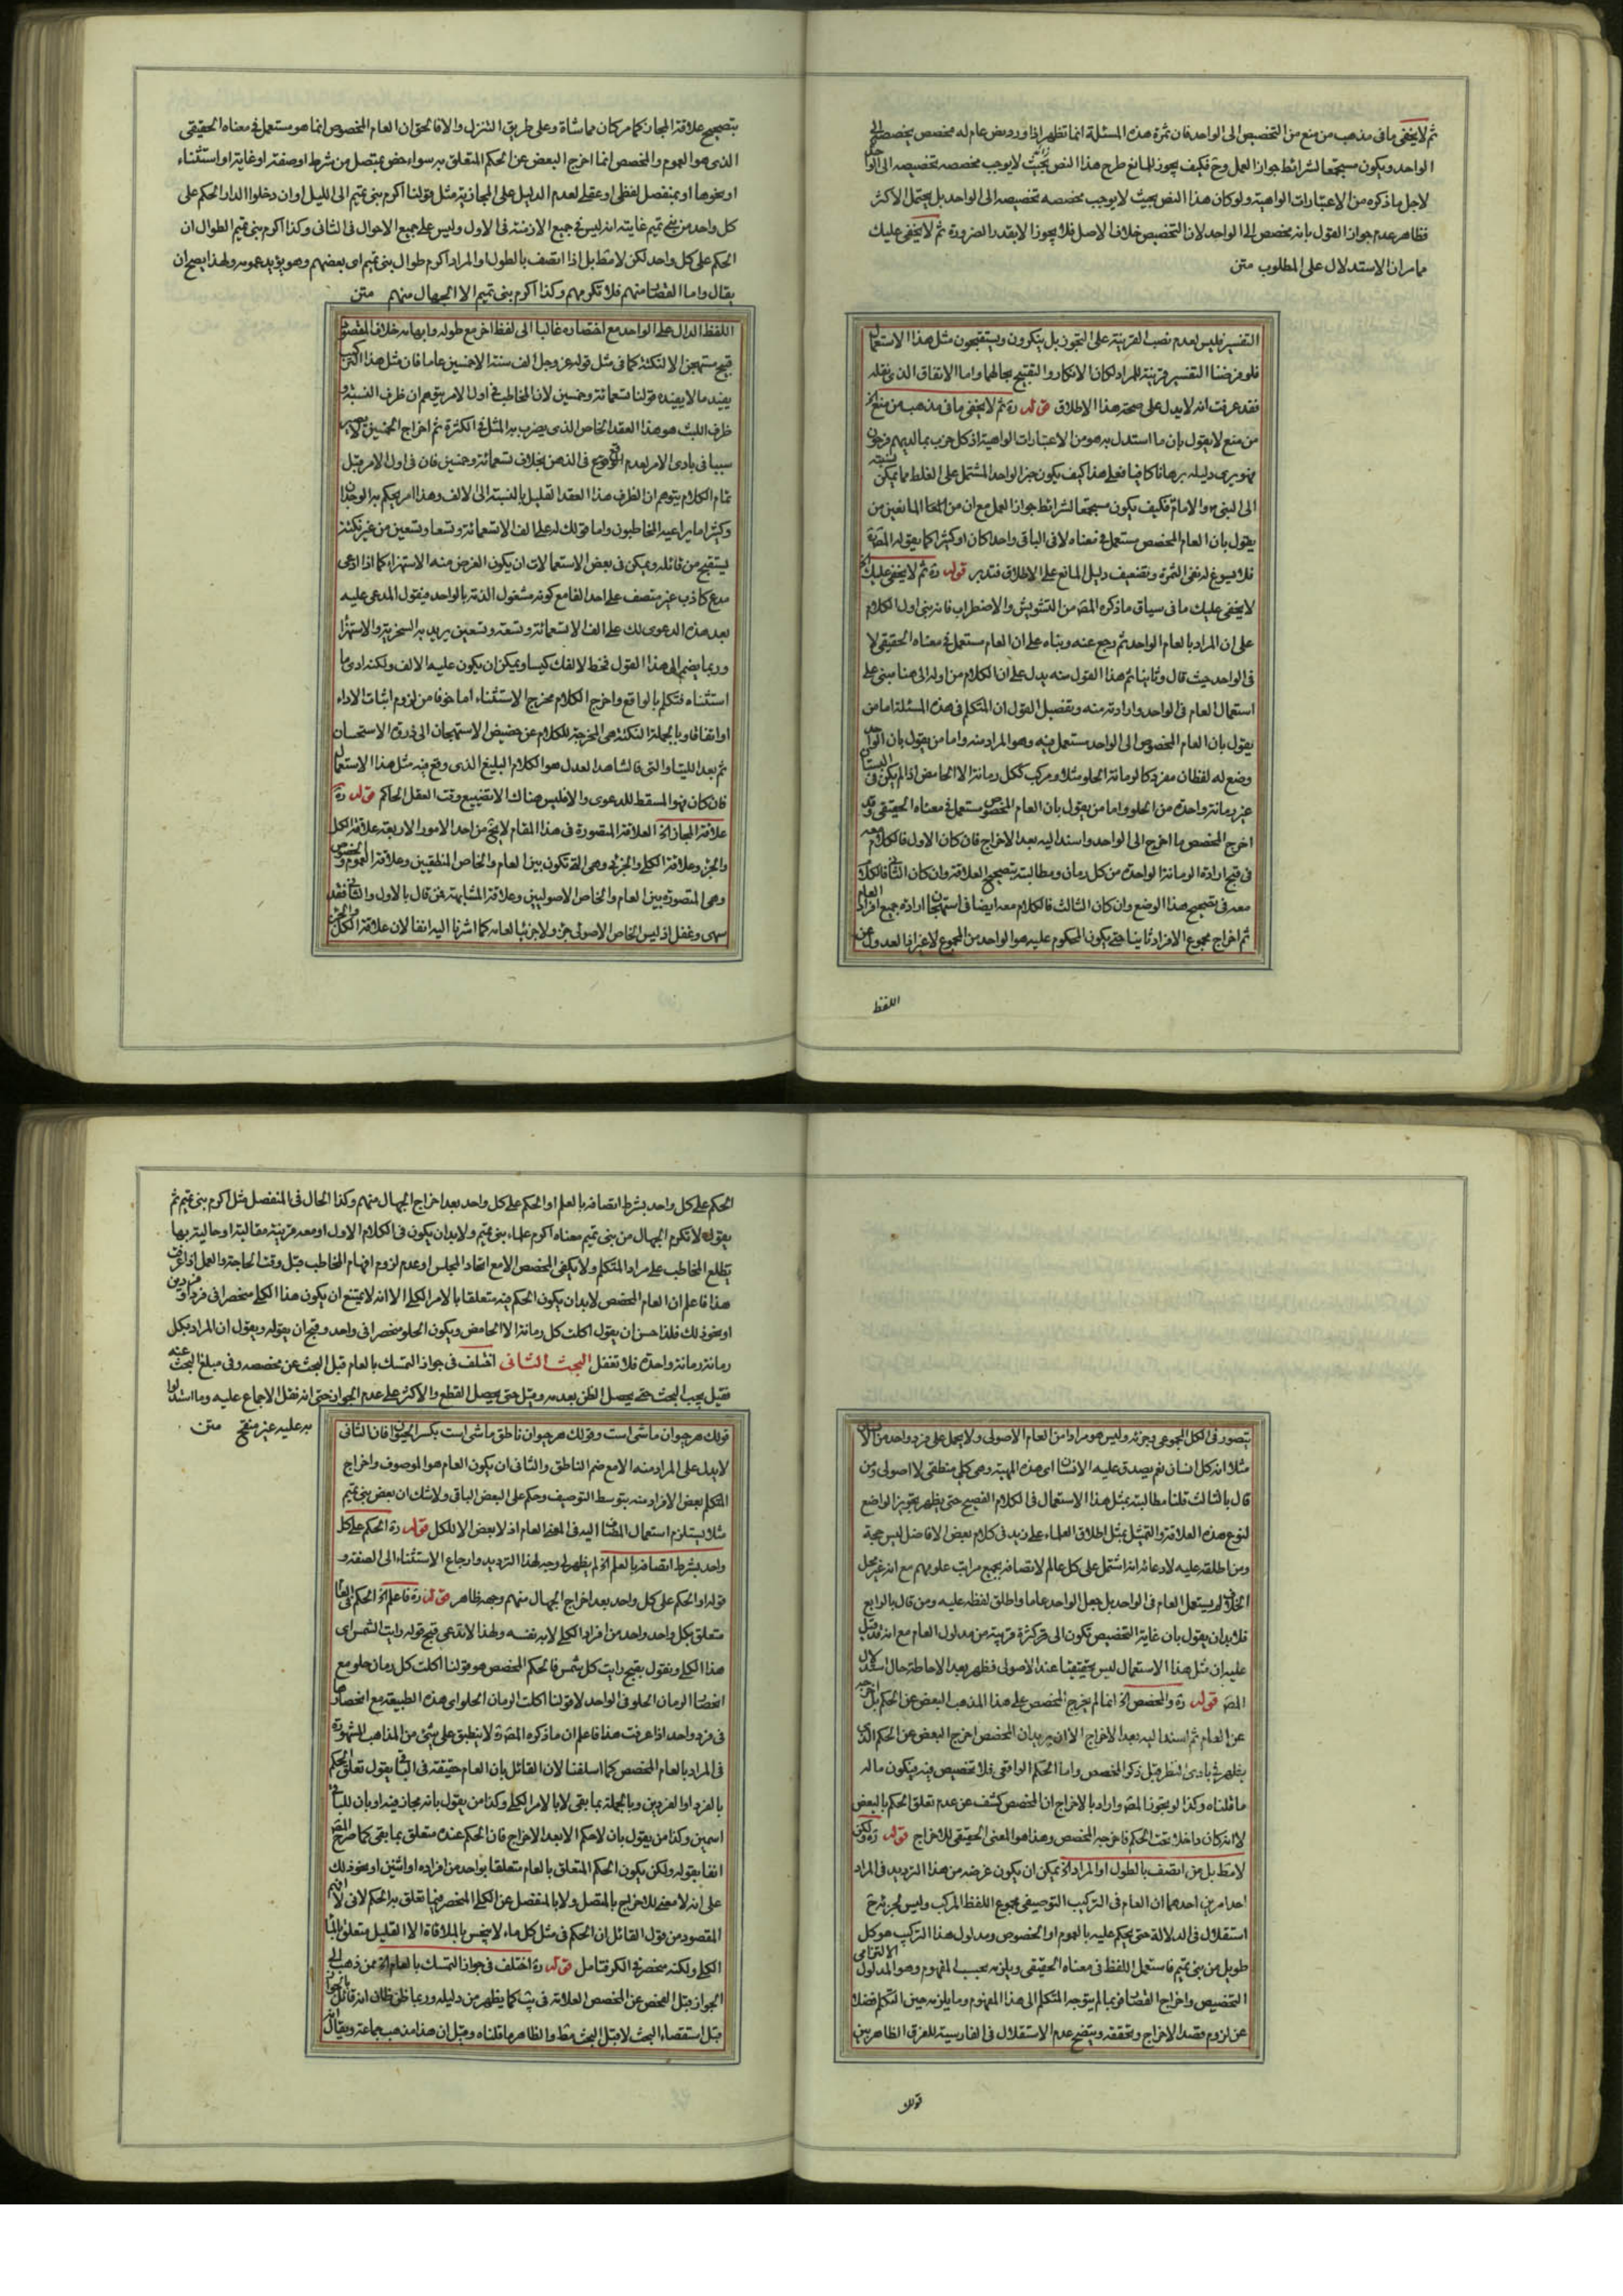 ثم لا يخفى ما فى مذهب من منع من التخصيص الى الواحد فان ثمرة هذه المسئلة انما تظهر اذا ورد نص عام له مخصص يخصصه الى
الواحد ويكون مستجمعا لشرائط جواز العمل وح فكيف يجوز للمانع طرح هذا النص بحيث لا يوجب مخصصه تخصيصه الى الواحد
لاجل ما ذكره من الاعتبارات الواهية ولو كان هذا النص بحيث لا يوجب مخصصه تخصيصه الى الواحد بل يحتمل الاكثر
فظاهر عدم جواز القول بانه مخصص الى الواحد لان التخصيص خلاف الاصل فلا يجوز الا بقدر الضرورة ثم لا يخفى عليك
مما مر ان الاستدلال على المطلوب متن
التفسير فليس لعدم نصب القرينة على التجوز بل ينكرون ويستقبحون مثل هذا الاستعمال
فلو فرضنا التفسير قرينة للمراد لكان الانكار والتقبيح بحالهما واما الاتفاق الذى نقله
فقد عرفت انه لا يدل على صحة هذا الاطلاق قوله ره ثم لا يخفى ما فى مذهب من منع الخ
من منع لا يقول بان ما استدل به هو من الاعتبارات الواهية اذ كل حزب بما لديهم فرحون
فهو يرى دليله برهانا كافيا فعلى هذا كيف يكون خبر الواحد المشتمل على الغلط مما يمكن نسبته
الى النبى ص والامام ع فكيف يكون مستجمعا لشرائط جواز العمل مع ان من المانعين من
يقول بان العام المخصص مستعمل فى معناه لا فى الباقى واحدا كان او كثيرا كما يقوله المص ره
فلا يسوغ له نفى الثمرة وتضعيف دليل المانع على الاطلاق فتدبر قوله ره ثم لا يخفى عليك الخ
لا يخفى عليك ما فى سياق ما ذكره المص من التشويش والاضطراب فانه بنى اول الكلام
على ان المراد بالعام الواحد ثم رجع عنه وبناه على ان العام مستعمل فى معناه الحقيقى لا
فى الواحد حيث قال وثانيا ثم هذا القول منه يدل على ان الكلام من اوله الى هنا مبنى على
استعمال العام فى الواحد وارادته منه وتفصيل القول ان المتكلم فى هذه المسئلة اما من
يقول بان العام المخصوص الى الواحد مستعمل فيه وهو المراد منه واما من يقول بان الواحد
وضع له لفظان مفرد كالرمانة الحلو مثلا ومركب ككل رمانة الا الحامض اذا لم يكن فى البستان
غير رمانة واحدة من الحلو واما من يقول بان العام المخصوص مستعمل فى معناه الحقيقى وقد
اخرج المخصص ما اخرج الى الواحد واسند اليه بعد الاخراج فان كان الاول فالكلام معه
فى قبح ارادة الرمانة الواحدة من كل رمان ومطالبته بتصحيح العلاقة وان كان الثانى فالكلام
معه فى تقبيح هذا الوضع وان كان الثالث فالكلام معه ايضا فى استهجان ارادة جميع افراد العام
ثم اخراج مجموع الافراد ثانيا حتى يكون المحكوم عليه هو الواحد من المجموع لا غير فالعدول عن
اللفظ
بتصحيح علاقة المجاز كما مر كان مماشاة وعلى طريق التنزل والا فالحق ان العام المخصوص انما هو مستعمل فى معناه الحقيقى
الذى هو العموم والمخصص انما اخرج البعض عن الحكم المتعلق به سواء خص بمتصل من شرط او صفة او غاية او استثناء
او نحوها او بمنفصل لفظى او عقلى لعدم الدليل على المجازية مثل قولنا اكرم بنى تميم الى الليل او ان دخلوا الدار الحكم على
كل واحد من بنى تميم غايته انه ليس فى جميع الازمنة فى الاول وليس على جميع الاحوال فى الثانى وكذا اكرم بنى تميم الطوال ان
الحكم على كل واحد لكن لا مط بل اذا اتصف بالطول او المراد اكرم طوال بنى تميم اى بعضهم وهو يؤيد عمومه ولهذا يصح ان
يقال واما القصار منهم فلا تكرمهم وكذا اكرم بنى تميم الا الجهال منهم متن
اللفظ الدال على الواحد مع اختصاره غالبا الى لفظ اخر مع طوله وابهامه خلاف المقصود
قبيح مستهجن الا لنكتة كما فى مثل قوله عز وجل الف سنة الا خمسين عاما فان مثل هذا التركيب
يفيد ما لا يفيده قولنا تسعمائة وخمسين لان المخاطب فى اول الامر يتوهم ان ظرف النسبة و
ظرف اللبث هو هذا العقد الخاص الذى يضرب به المثل فى الكثرة ثم اخراج الخمسين لا يصير
سببا فى بادى الامر لعدم الوقوع فى الذهن بخلاف تسعمائة وخمسين فان فى اول الامر قبل
تمام الكلام يتوهم ان الظرف هذا العقد القليل بالنسبة الى الالف وهذا امر يحكم به الوجدان
وكثيرا ما يراعيه المخاطبون واما قولك له على الف الا تسعمائة وتسعا وتسعين من غير نكتة
يستقبح من قائله ويمكن فى بعض الاستعمالات ان يكون الغرض منه الاستهزاء كما اذا ادعى
مدع كاذب غير متصف على احد الفا مع كونه مشغول الذمة بالواحد فيقول المدعى عليه
بعد هذه الدعوى لك على الف الا تسعمائة وتسعة وتسعين يريد به السخرية والاستهزاء
وربما يضم الى هذا القول فخط لالفك كيسا ويمكن ان يكون عليه الالف ولكنه ادى ما
استثناه فتكلم بالواقع واخرج الكلام مخرج الاستثناء اما خوفا من لزوم اثبات الاداء
او اتفاقا وبالجملة النكتة هى المخرجة للكلام عن حضيض الاستهجان الى ذروة الاستحسان
ثم بعد اللتيا والتى فالشاهد العدل هو الكلام البليغ الذى وقع فيه مثل هذا الاستعمال
فان كان فهو المسقط للدعوى والا فليس هناك الا تضييع وقت العقل الحاكم قوله ره
علاقة المجاز الخ العلاقة المتصورة فى هذا المقام لا يخ من احد الامور الاربعة علاقة الكل
والجزء وعلاقة الكلى والجزئى وهى التى تكون بين العام والخاص المنطقيين وعلاقة العموم والخصوص
وهى المتصورة بين العام والخاص الاصوليين وعلاقة المشابهة فمن قال بالاول والثانى فقد
سهى وغفل اذ ليس الخاص الاصولى جزء ولا جزئيا لعامه كما اشرنا اليه انفا لان علاقة الكل والجزء
يتصور فى الكل المجموعى وجزئه وليس هو مرادا من العام الاصولى ولا يحمل على فرد واحد من الانسان
مثلا انه كل انسان نعم يصدق عليه الانسان اى هذه المهية وهى كلى منطقى لا اصولى ومن
قال بالثالث قلنا مطالبته بمثل هذا الاستعمال فى الكلام الفصيح حتى يظهر تجويز الواضع
لنوع هذه العلاقة والتمثيل بمثل اطلاق العلماء على زيد فى كلام بعض الافاضل ليس حجة
ومن اطلقه عليه لادعائه انه اشتمل على كل عالم لاتصافه بجميع مراتب علومهم مع انه غير محل
الخلاف لم يستعمل العام فى الواحد بل جعل الواحد عاما واطلق لفظه عليه ومن قال بالرابع
فلا بد ان يقول بان غاية التخصيص تكون الى كثرة قريبة من مدلول العام مع انه قد قيل
عليه ان مثل هذا الاستعمال ليس حقيقيا عند الاصولى فظهر بعد الاحاطة حال استدلال
المص قوله ره والمخصص الخ انما لم يخرج المخصص على هذا المذهب البعض عن الحكم بل اخرجه
عن العام ثم اسند اليه بعد الاخراج الا ان يريد ان المخصص اخرج البعض عن الحكم الذى
يظهر فى بادى النظر قبل ذكر المخصص واما الحكم الواقعى فلا تخصيص فيه فيكون ماله
ما قلناه وكذا لو تجوز المص واراد بالاخراج ان المخصص كشف عن عدم تعلق الحكم بالبعض
لا انه كان داخلا تحت الحكم فاخرجه المخصص وهذا هو المعنى الحقيقى للاخراج قوله ره ولكن
لا مط بل من اتصف بالطول او المراد الخ يمكن ان يكون غرضه من هذا الترديد فى المراد
احد امرين احدهما ان العام فى التركيب التوصيفى مجموع اللفظ المركب وليس لجزئه ح
استقلال فى الدلالة حتى يحكم عليه بالعموم او الخصوص ومدلول هذا التركيب هو كل
طويل من بنى تميم فاستعمل اللفظ فى معناه الحقيقى ويلزمه بحسب المفهوم وهو المدلول الالتزامى
التخصيص واخراج القصار فربما لم يتوجه المتكلم الى هذا المفهوم وما يلزمه حين التكلم فضلا
عن لزوم قصد الاخراج وتحققه ويتضح عدم الاستقلال فى الفارسية للفرق الظاهر بين
قولك
الحكم على كل واحد بشرط اتصافه بالعلم او الحكم على كل واحد بعد اخراج الجهال منهم وكذا الحال فى المنفصل مثل اكرم بنى تميم ثم
يقول لا تكرم الجهال من بنى تميم معناه اكرم علماء بنى تميم ولا بد ان يكون فى الكلام الاول او معه قرينة مقالية او حالية بها
يطلع المخاطب على مراد المتكلم ولا يكفى المخصص الا مع اتحاد المجلس او عدم لزوم افهام المخاطب قبل وقت الحاجة والعمل اذا عرفت
هذا فاعلم ان العام المخصص لا بد ان يكون الحكم فيه متعلقا بالامر الكلى الا انه لا يمتنع ان يكون هذا الكلى منحصرا فى فرد او فردين
او نحو ذلك فلذا حسن ان يقول اكلت كل رمانة الا الحامض ويكون الحلو منحصرا فى واحد وقبح ان يقوله ويقول ان المراد بكل
رمانة رمانة واحدة فلا تغفل البحث الثانى اختلف فى جواز التمسك بالعام قبل البحث عن مخصصه وفى مبلغ البحث عنه
فقيل يجب البحث حتى يحصل الظن بعدمه وقيل حتى يحصل القطع والاكثر على عدم الجواز حتى انه نقل الاجماع عليه وما استدلوا
به عليه غير منقح متن
قولك هر حيوان ماشى است وقولك هر حيوان ناطق ماشى است بكسر الحيوان فان الثانى
لا يدل على المراد منه الا مع ضم الناطق والثانى ان يكون العام هو الموصوف واخراج
المتكلم بعض الافراد منه بتوسط التوصيف وحكم على البعض الباقى ولا شك ان بعض بنى تميم
مثلا يستلزم استعمال المضاف اليه فى المعنى العام اذ لا بعض الا للكل قوله ره الحكم على كل
واحد بشرط اتصافه بالعلم الخ لم يظهر لى وجه لهذا الترديد وارجاع الاستثناء الى الصفة و
قوله او الحكم على كل واحد بعد اخراج الجهال منهم وجهه ظاهر قوله ره فاعلم الخ الحكم فى العام
متعلق بكل واحد واحد من افراد الكلى لا به نفسه ولهذا لا تدعى قبح قوله رايت الشمس اى
هذا الكلى ونقول بقبح رايت كل شمس فالحكم المخصص هو قولنا اكلت كل رمان حلو مع
انحصار الرمان الحلو فى الواحد لا قولنا اكلت الرمان الحلو اى هذه الطبيعة مع انحصارها
فى فرد واحد اذا عرفت هذا فاعلم ان ما ذكره المص ره لا ينطبق على شئ من المذاهب المشهورة
فى المراد بالعام المخصص كما اسلفنا لان القائل بان العام حقيقة فى الباقى يقول تعلق الحكم
بالفرد او الفردين وبالجملة بما بقى لا بالامر الكلى وكذا من يقول بانه مجاز فيه او بان للباقى
اسمين وكذا من يقول بان لا حكم الا بعد الاخراج فان الحكم عنده متعلق بما بقى كما صرح المص
انفا بقوله ولكن يكون الحكم المتعلق بالعام متعلقا بواحد من افراده او اثنين او نحو ذلك
على انه لا معنى للاخراج بالمتصل ولا بالمنفصل عن الكلى المنحصر فيما تعلق به الحكم لا فى
المقصود من قول القائل ان الحكم فى مثل كل ماء لا ينجس بالملاقاة الا القليل متعلق بالماء
الكلى ولكنه منحصر فى الكر فتامل قوله ره اختلف فى جواز التمسك بالعام الخ ممن ذهب الى
الجواز قبل الفحص عن المخصص العلامة فى يب كما يظهر من دليله وربما ظن ظان انه قائل بالجواز
قبل استقصاء البحث لا قبل البحث مط والظاهر ما قلناه وقيل ان هذا مذهب جماعة ويقال انه